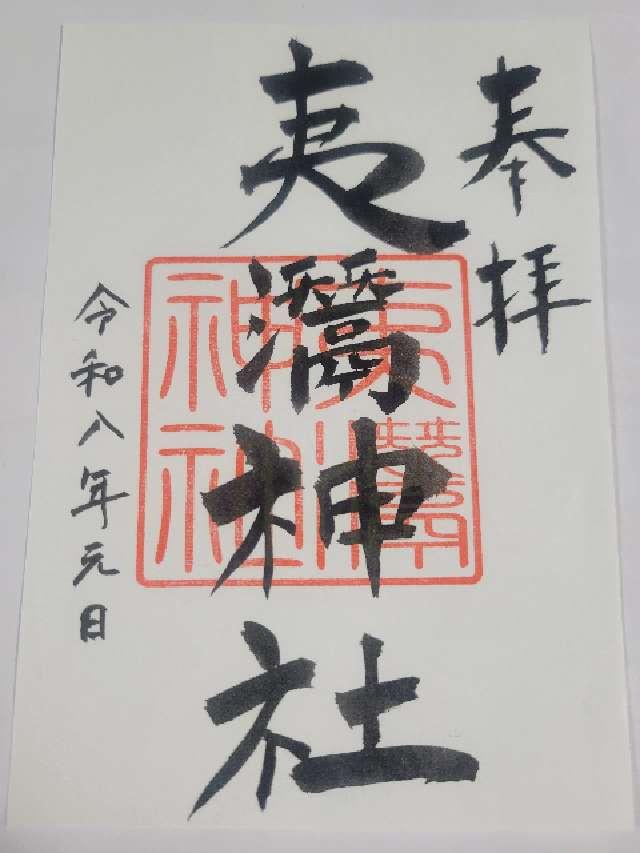 奉拝
夷灊神社
夷灊
神社
令和八年元日